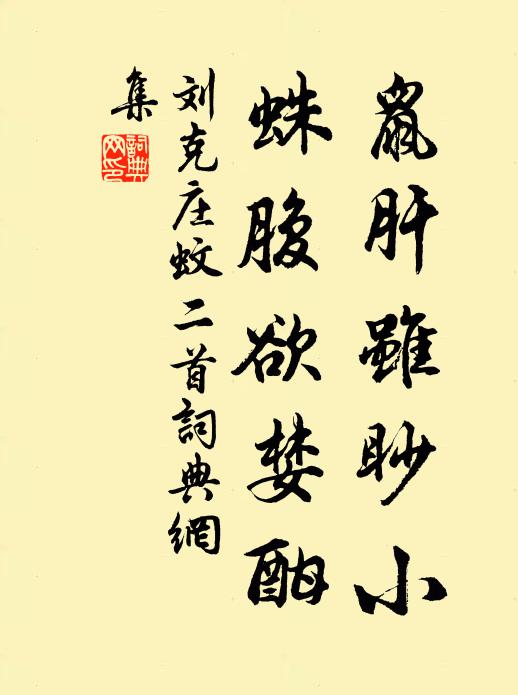 鼠肝雖眇小
蛛腹欲婪酣
刘克庄蚊二首詞典網
集
詞典
网印